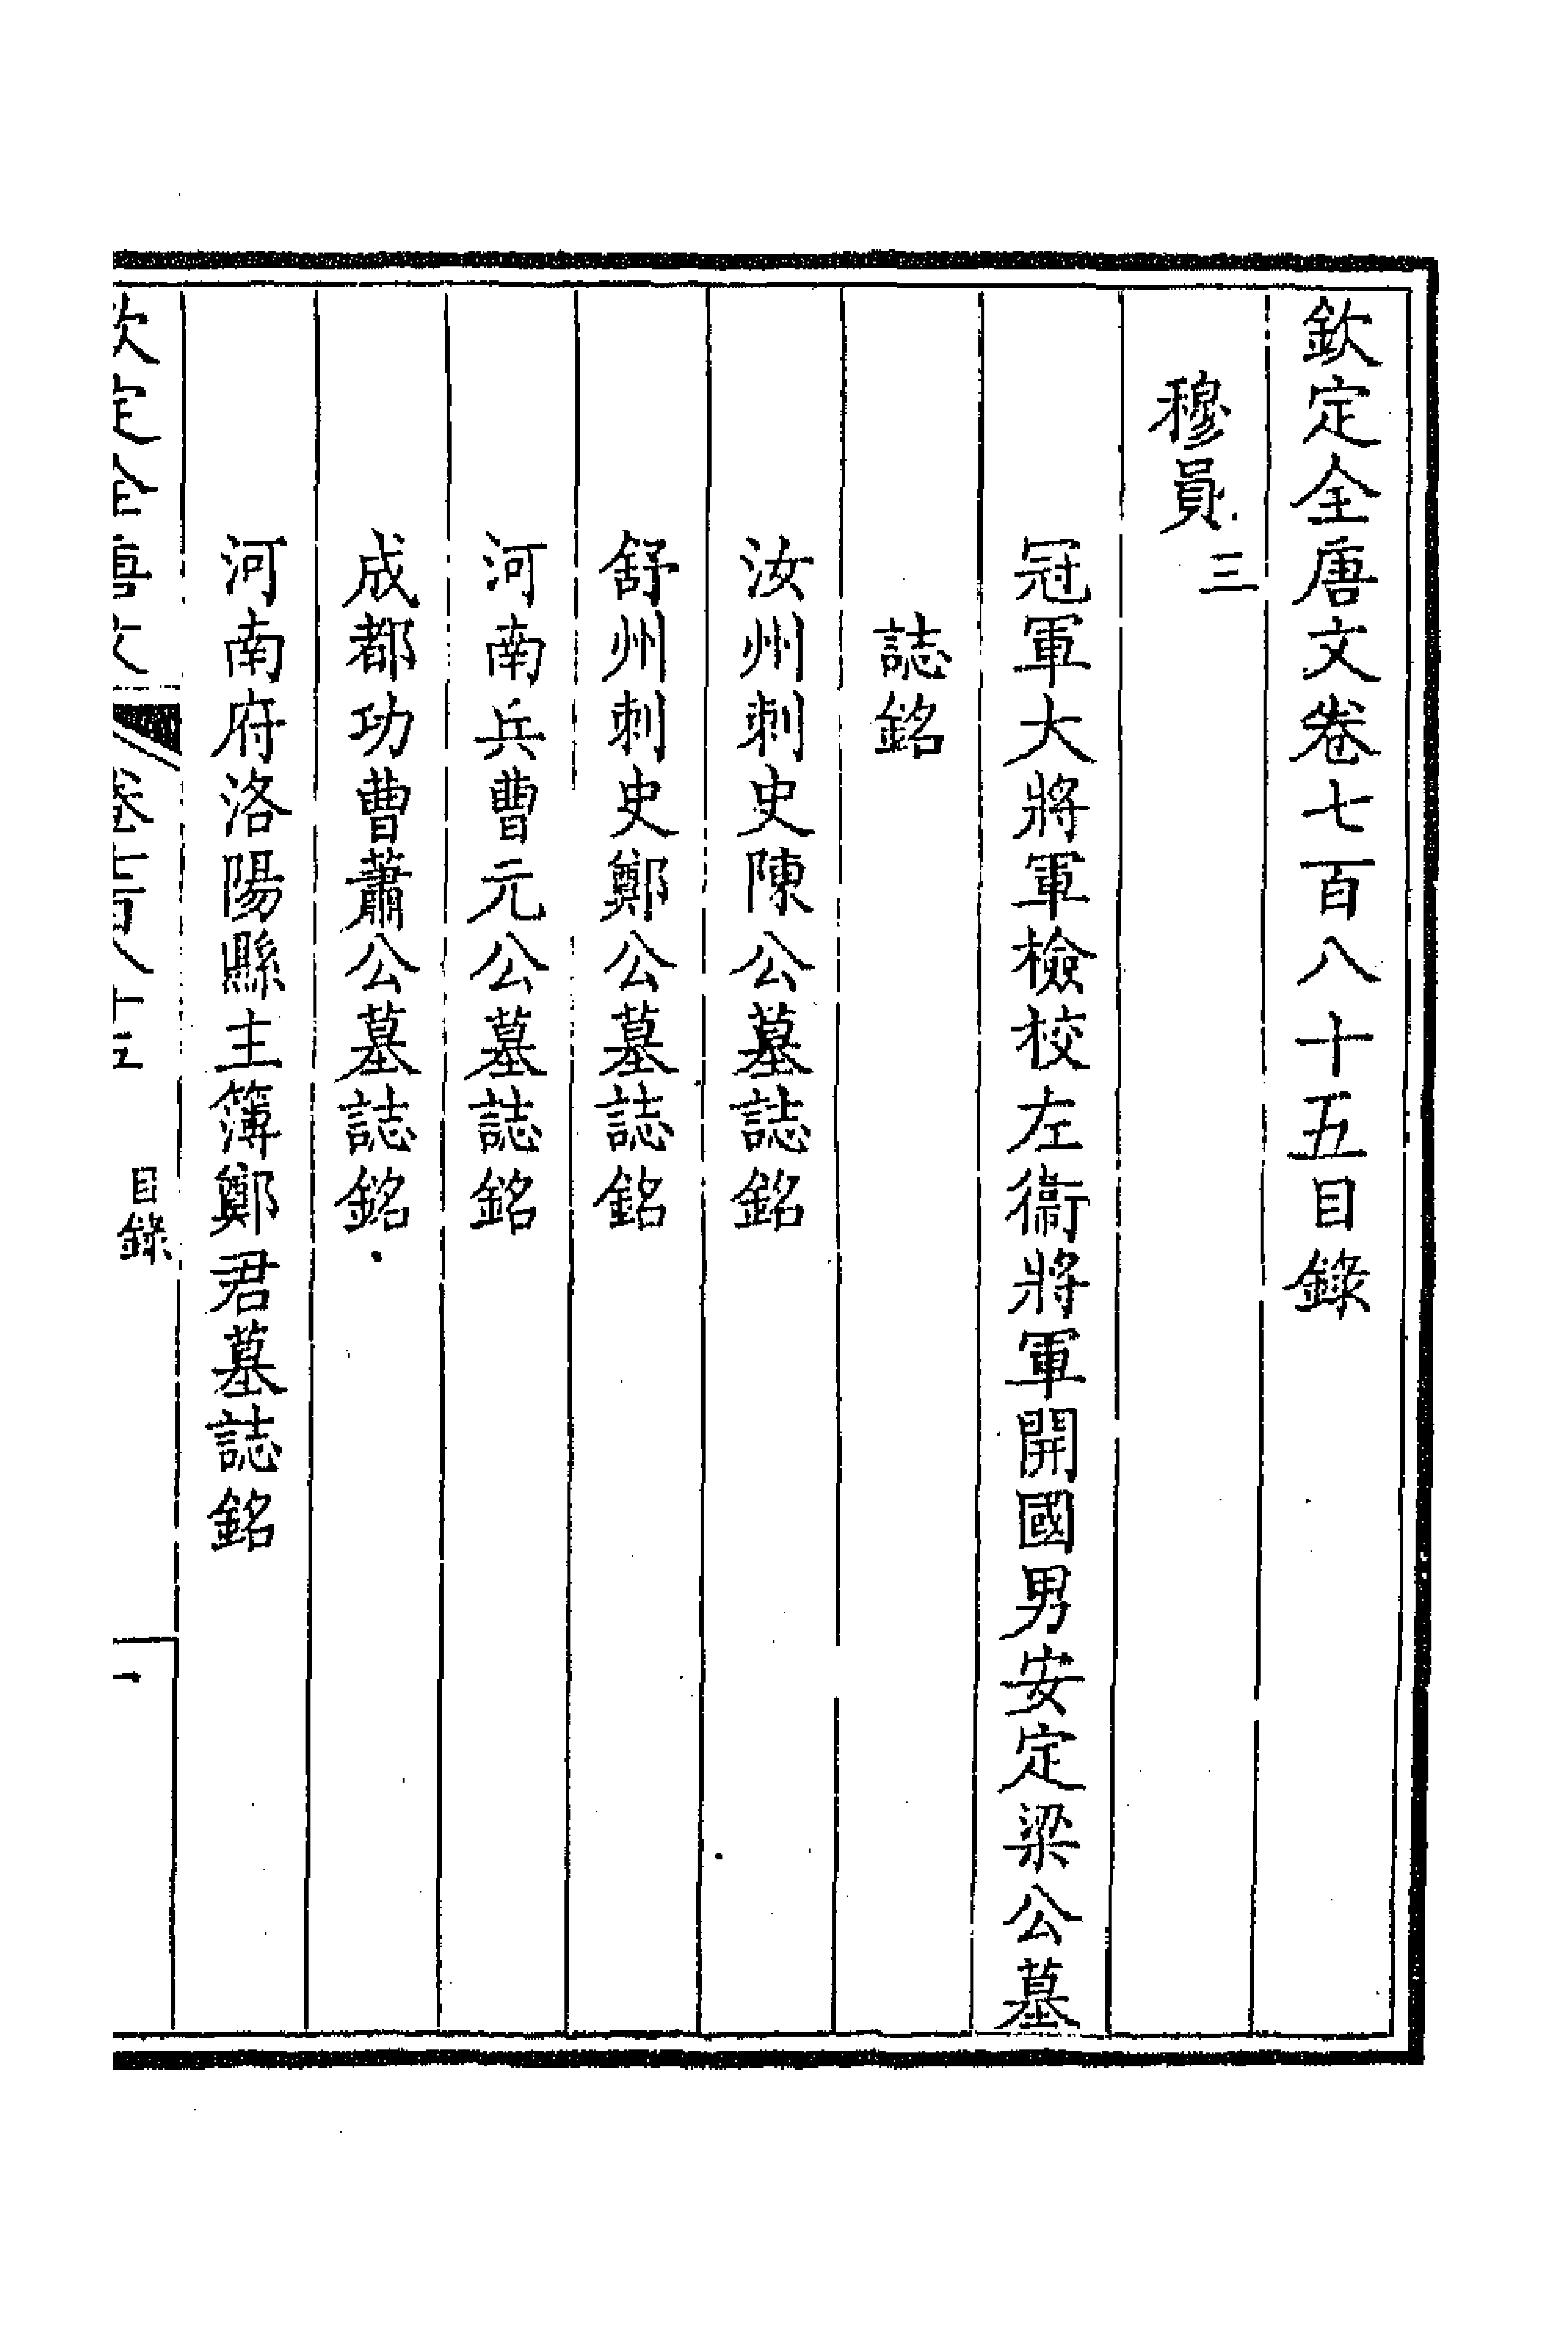 欽定全唐文卷七百八十五目錄
穆員三
冠軍大將軍檢校左衞將軍開國男安定梁公墓
誌銘
汝州刺史陳公墓誌銘
舒州刺史鄭公墓誌銘
河南兵曹元公墓誌銘
成都功曹蕭公墓誌銘
河南府洛陽縣主簿鄭君墓誌銘
欽定全唐文 卷七百八十五 目錄 一